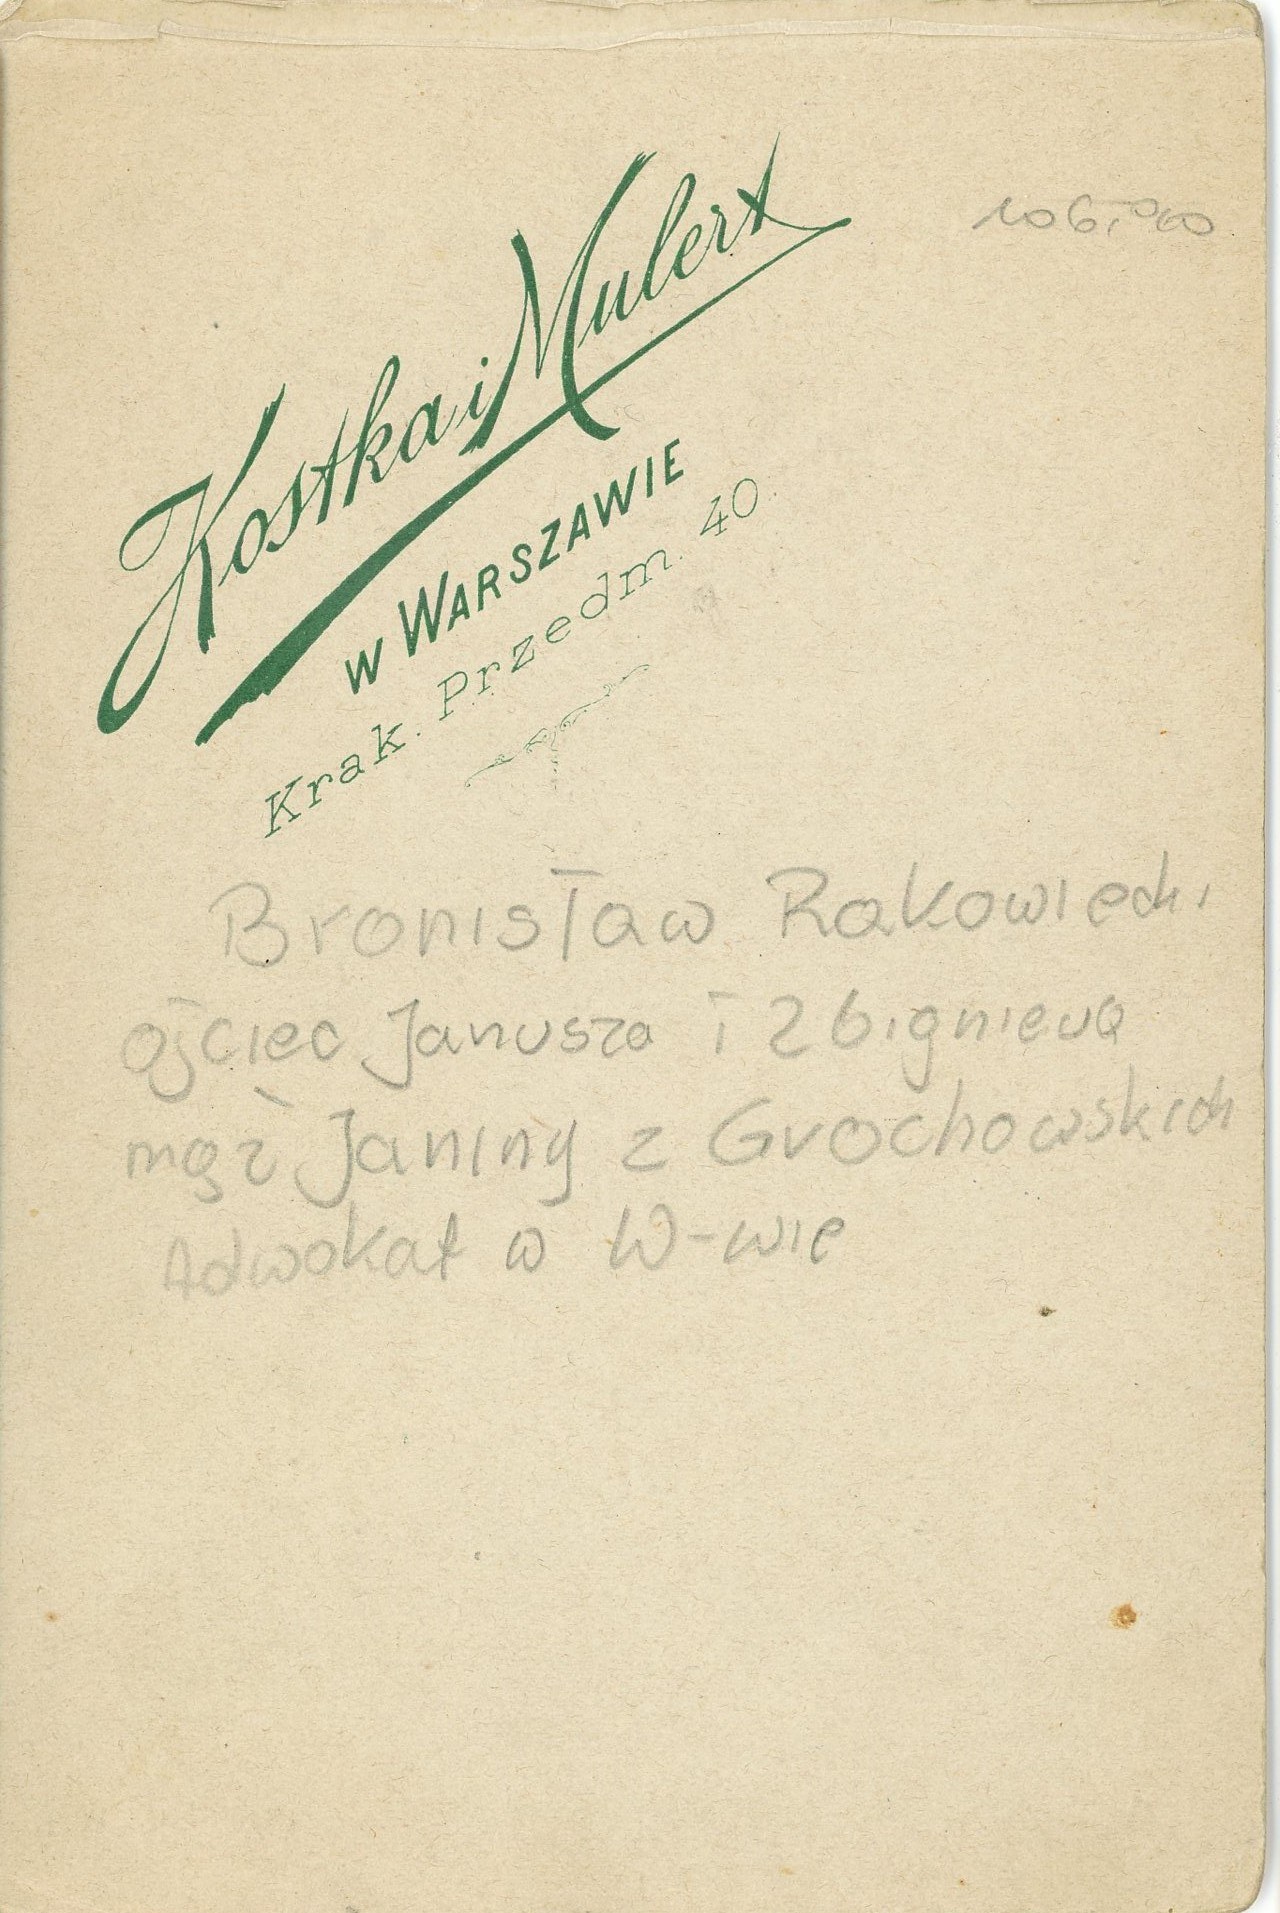 Kostka i Mulert
w WARSZAWIE
Krak. Przedm. 40.
Bronisław Rakowiecki
ojciec Janusza i Zbigniewa
mąż Janiny z Grochowskich
Adwokat w W-wie